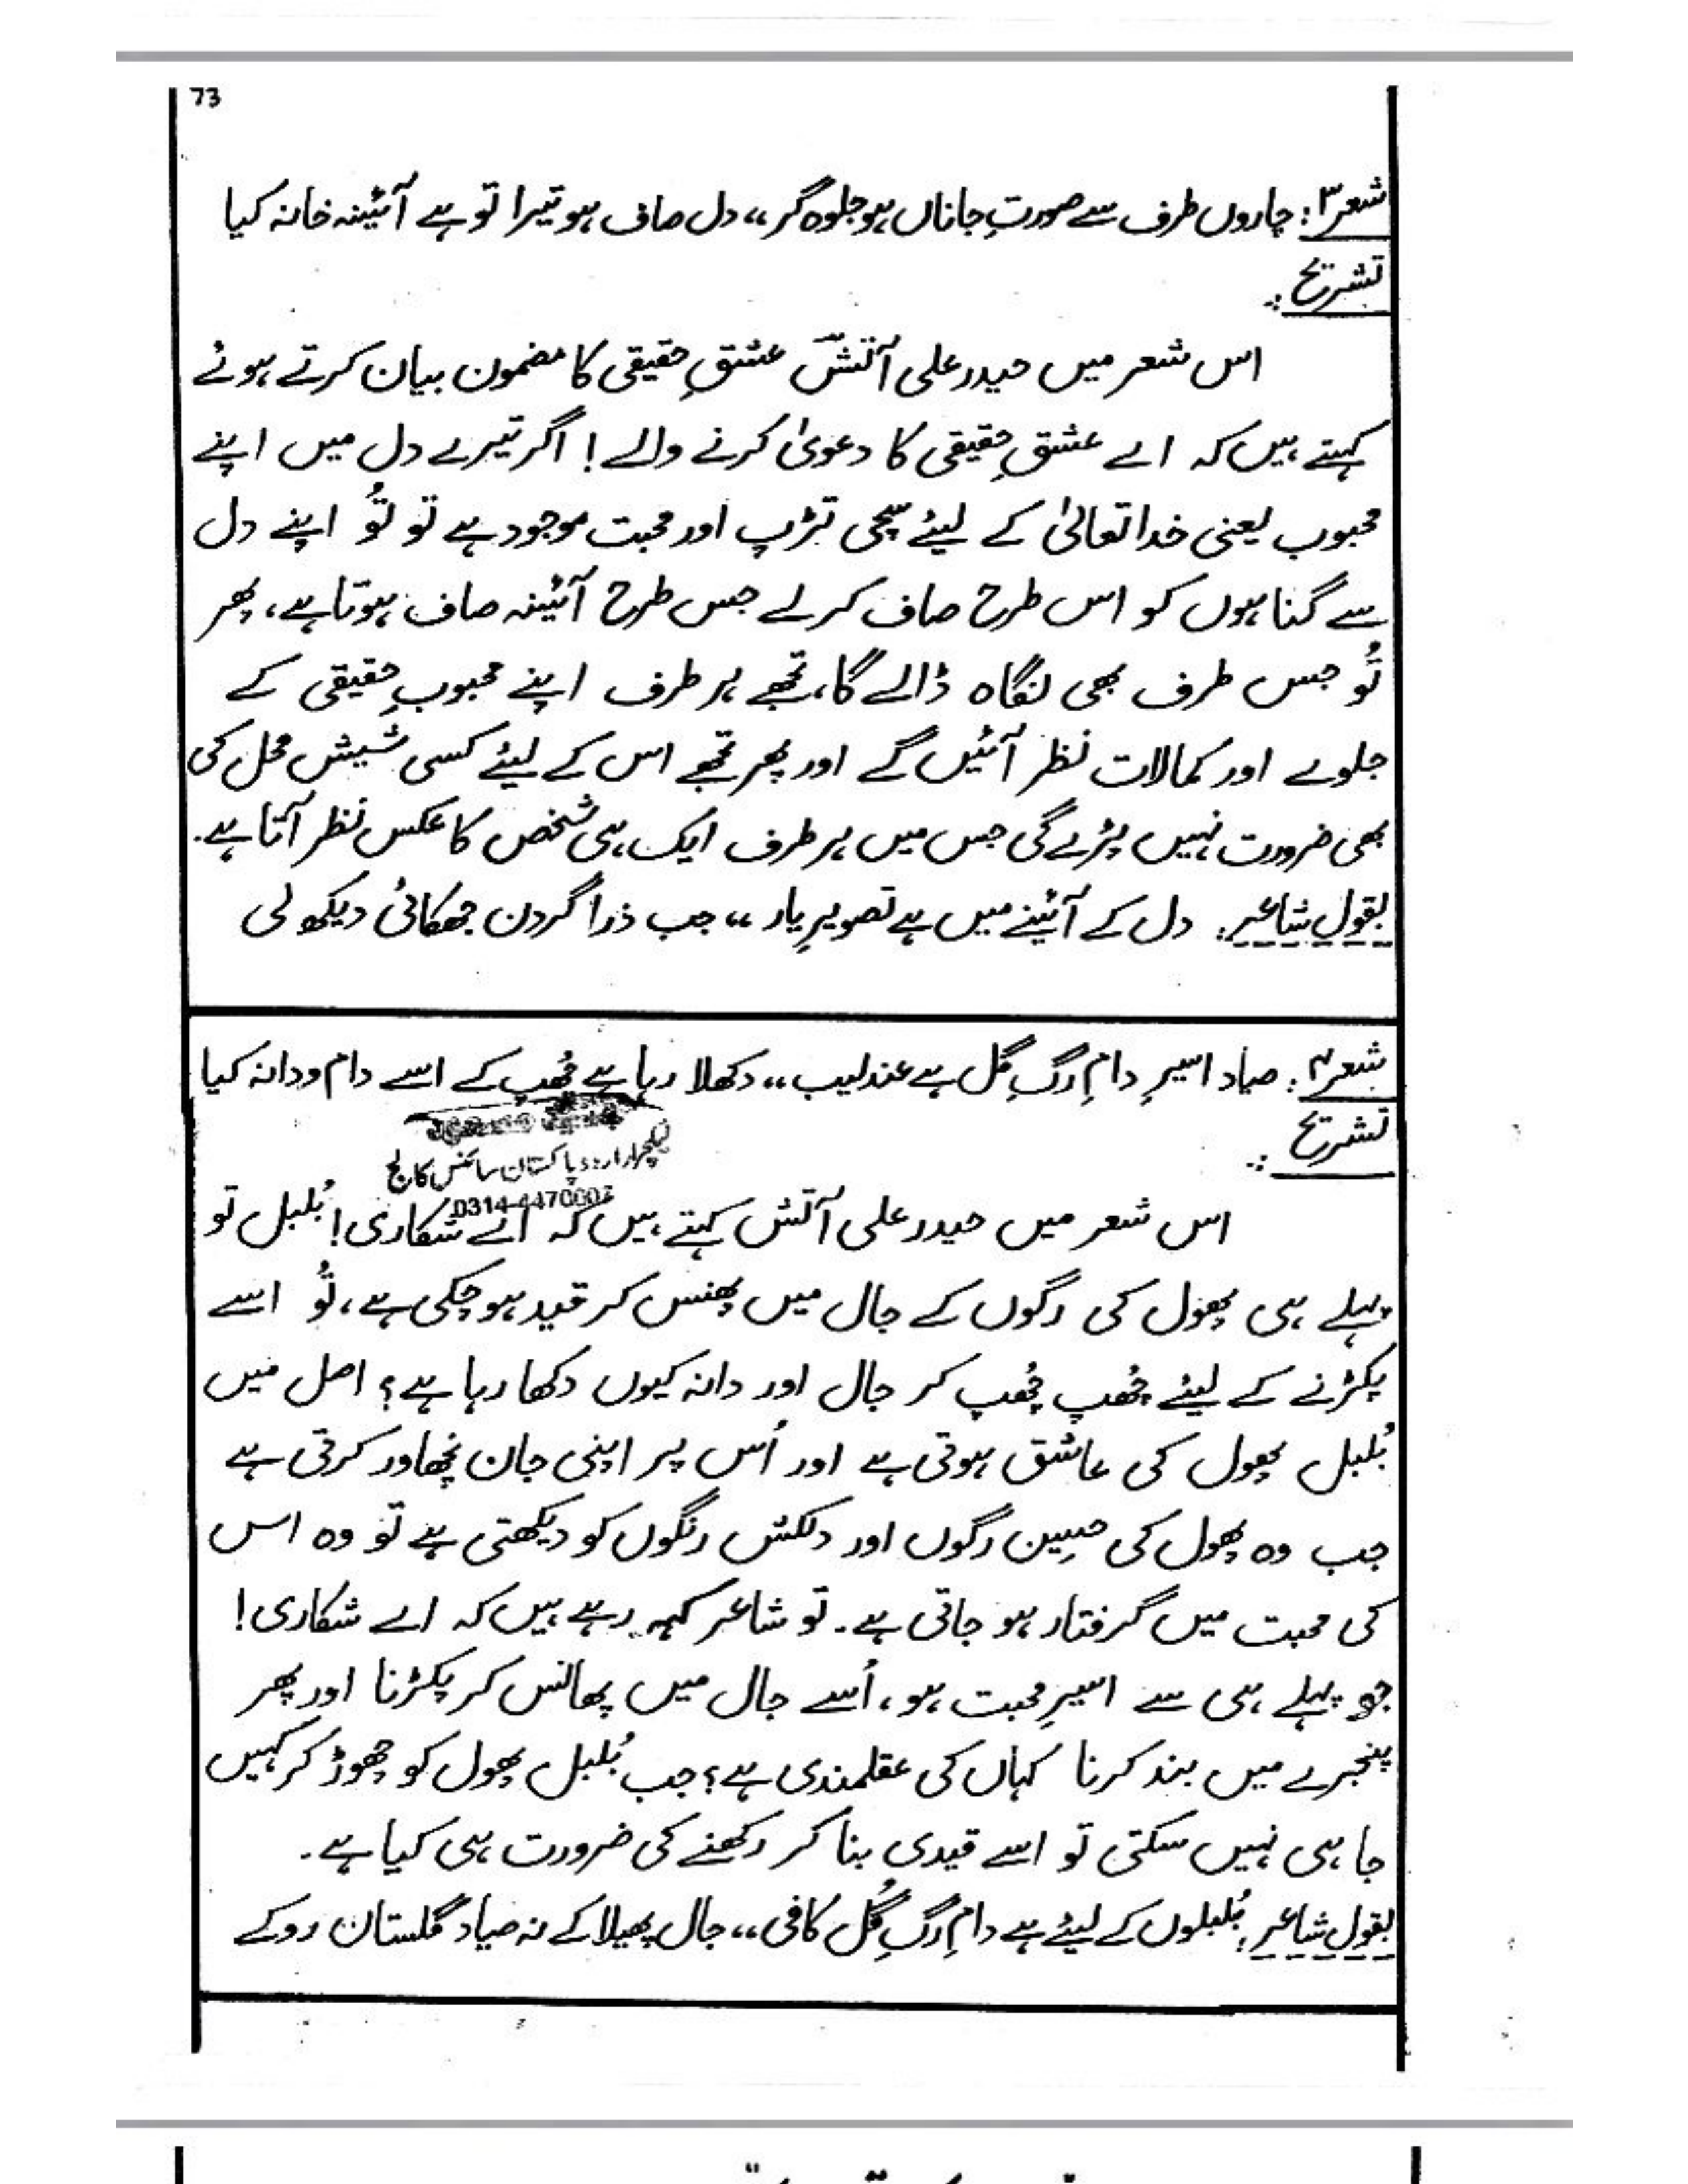 73
شعر۳: چاروں طرف سے صورتِ جاناں ہو جلوہ گر ،، دل صاف ہو تیرا تو ہے آئینہ خانہ کیا
تشریح :
اس شعر میں حیدر علی آتشؔ عشقِ حقیقی کا مضمون بیان کرتے ہوئے
کہتے ہیں کہ اے عشقِ حقیقی کا دعویٰ کرنے والے! اگر تیرے دل میں اپنے
محبوب یعنی خدا تعالیٰ کے لیئے سچی تڑپ اور محبت موجود ہے تو تُو اپنے دل
سے گناہوں کو اس طرح صاف کر لے جس طرح آئینہ صاف ہوتا ہے، پھر
تُو جس طرف بھی نگاہ ڈالے گا، تجھے ہر طرف اپنے محبوبِ حقیقی کے
جلوے اور کمالات نظر آئیں گے اور پھر تجھے اس کے لیئے کسی شیش محل کی
بھی ضرورت نہیں پڑے گی جس میں ہر طرف ایک ہی شخص کا عکس نظر آتا ہے۔
بقول شاعر: دل کے آئینے میں ہے تصویرِ یار ،، جب ذرا گردن جھکائی دیکھ لی
شعر۴: صیاد اسیرِ دامِ رگِ گُل ہے عندلیب ،، دکھلا رہا ہے چُھپ کے اسے دام و دانہ کیا
تشریح :
لیکچرار اردو پاکستان سائنس کالج
اس شعر میں حیدر علی آتش کہتے ہیں کہ اے شکاری! بُلبل تو
پہلے ہی پھول کی رگوں کے جال میں پھنس کر قید ہو چکی ہے، تُو اسے
پکڑنے کے لیئے چُھپ چُھپ کر جال اور دانہ کیوں دکھا رہا ہے؟ اصل میں
بُلبل پھول کی عاشق ہوتی ہے اور اُس پر اپنی جان نچھاور کرتی ہے
جب وہ پھول کی حسِین رگوں اور دلکش رنگوں کو دیکھتی ہے تو وہ اس
کی محبت میں گرفتار ہو جاتی ہے۔ تو شاعر کہہ رہے ہیں کہ اے شکاری!
جو پہلے ہی سے اسیرِ محبت ہو، اُسے جال میں پھانس کر پکڑنا اور پھر
پنجرے میں بند کرنا کہاں کی عقلمندی ہے؟ جب بُلبل پھول کو چھوڑ کر کہیں
جا ہی نہیں سکتی تو اسے قیدی بنا کر رکھنے کی ضرورت ہی کیا ہے۔
بقول شاعر: بُلبلوں کے لیئے ہے دامِ رگِ گُل کافی ،، جال پھیلا کے نہ صیاد گلستان روکے